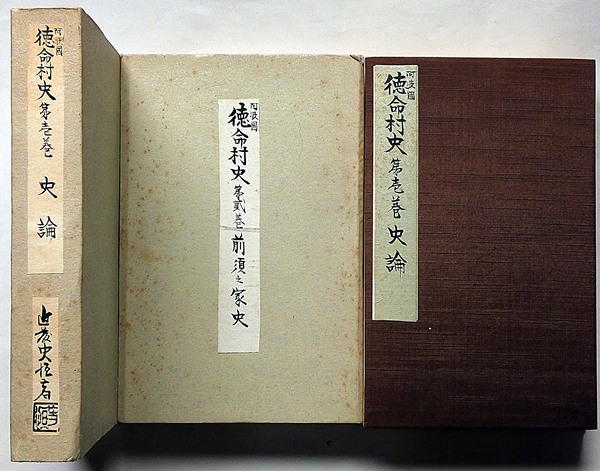 阿波國
徳命村史 第壱巻 史論
阿波國
徳命村史 第貳巻 前須之家史
阿波國
徳命村史 第壱巻 史論